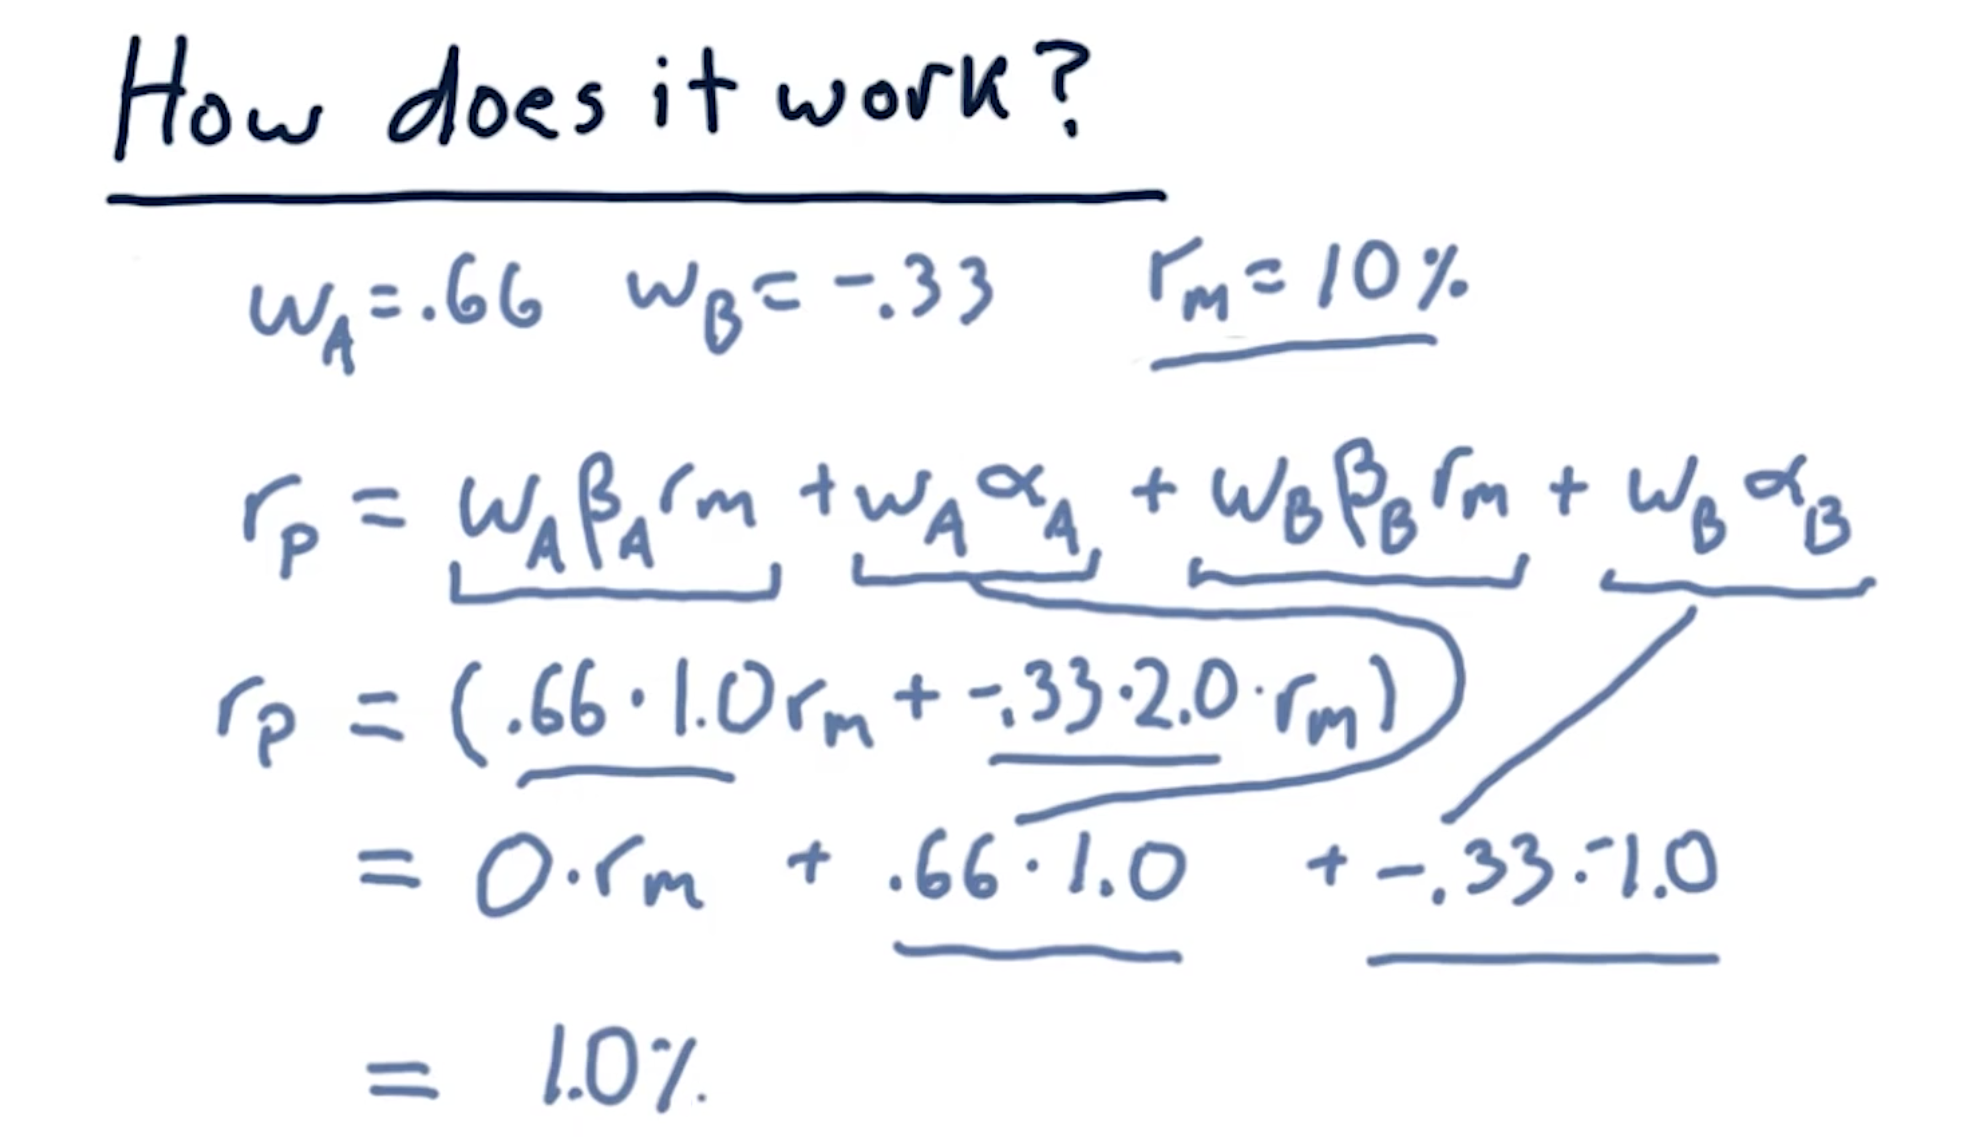 How does it work?
w_A = .66 w_B = -.33 r_m = 10%
r_p = w_A β_A r_m + w_A α_A + w_B β_B r_m + w_B α_B
r_p = (.66 · 1.0 r_m + -.33 · 2.0 · r_m)
= 0 · r_m + .66 · 1.0 + -.33 · -1.0
= 1.0%